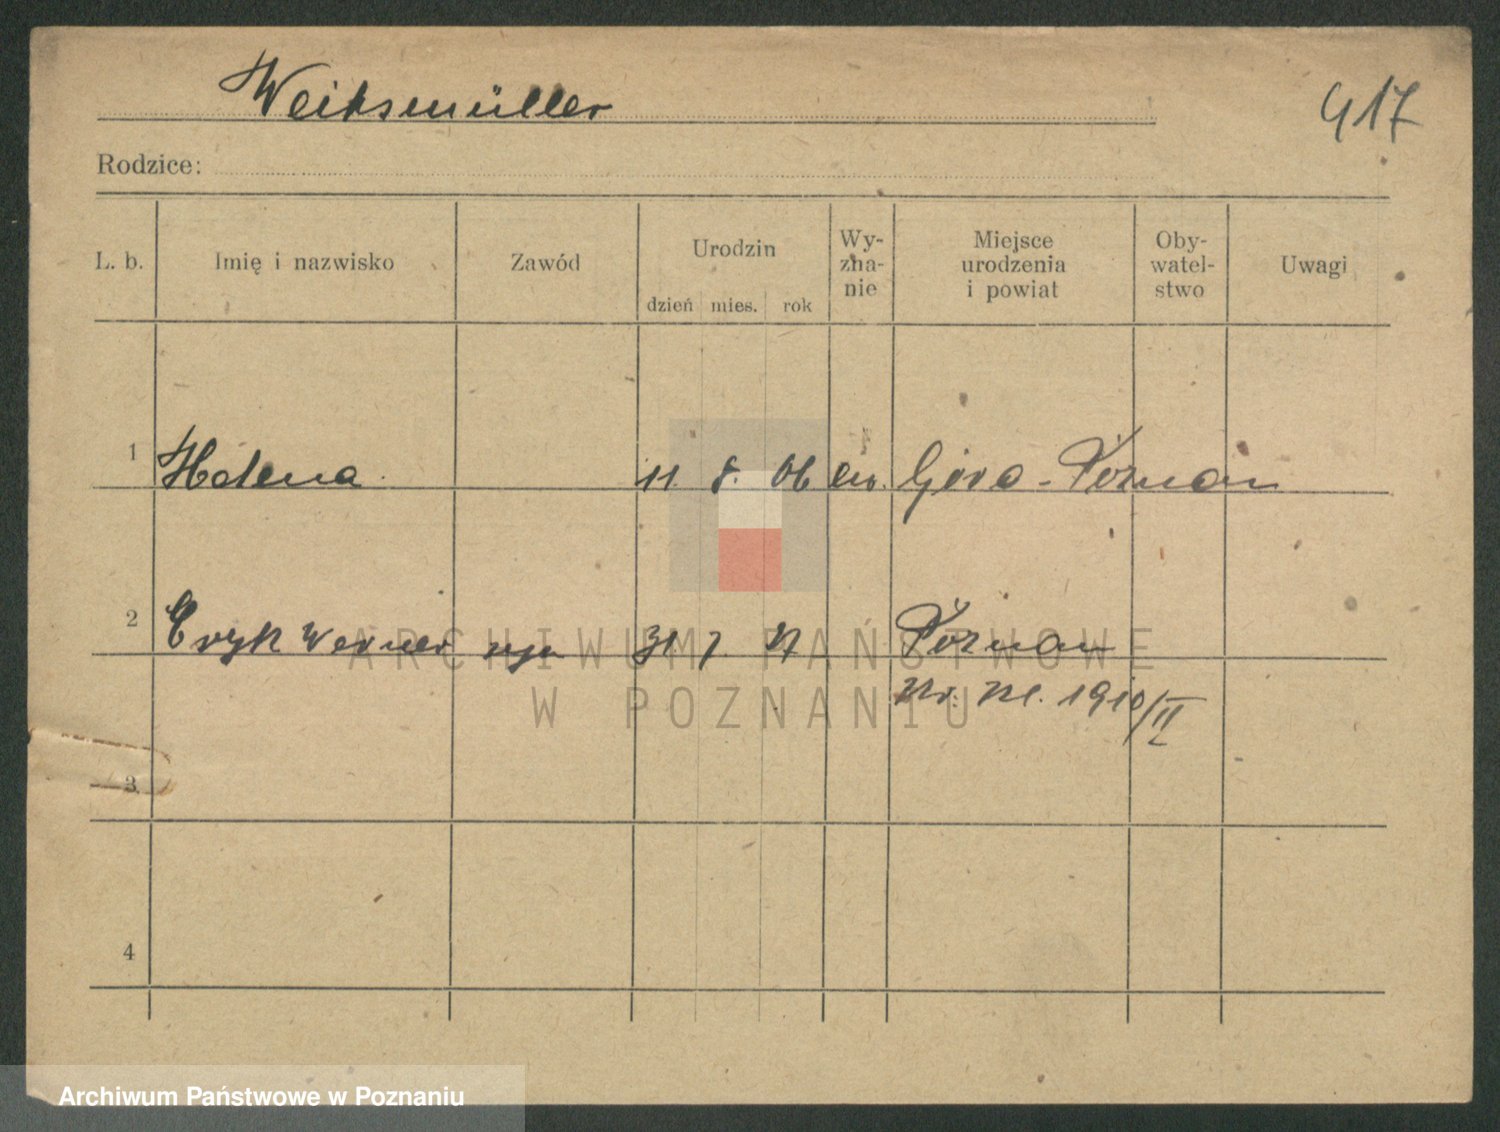 Weiksmüller
417
Rodzice:
L. b. Imię i nazwisko Zawód Urodzin dzień mies. rok Wy-zna-nie Miejsce urodzenia i powiat Oby-watel-stwo Uwagi
1 Helena 11. 8. 06 ew. Góra - Poznań
2 Eryk Werner syn 31 7. Poznań
1910/II
3
4
ARCHIWUM PAŃSTWOWE
W POZNANIU
Archiwum Państwowe w Poznaniu